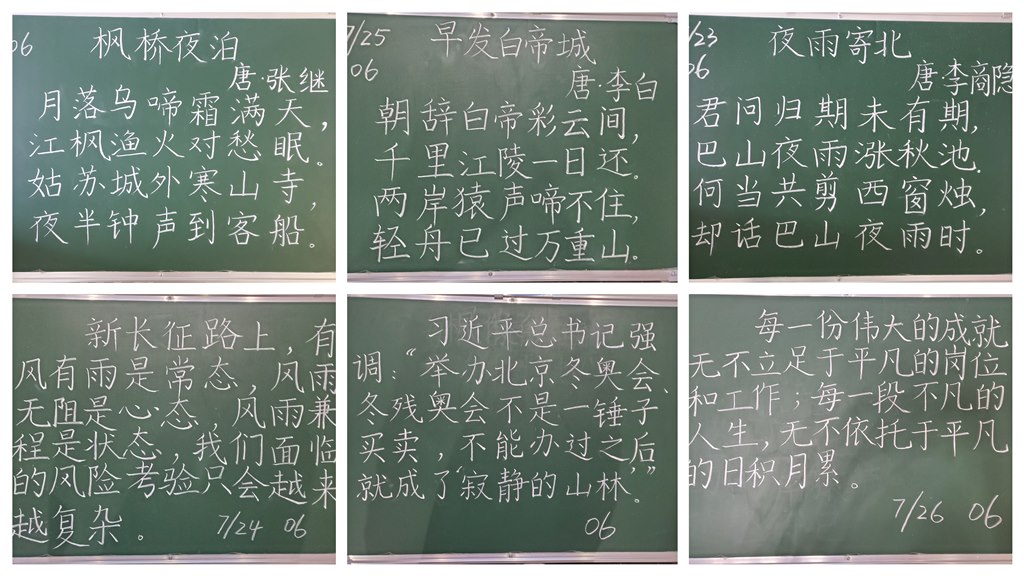 06
枫桥夜泊
唐·张继
月落乌啼霜满天，
江枫渔火对愁眠。
姑苏城外寒山寺，
夜半钟声到客船。
7/25
06
早发白帝城
唐·李白
朝辞白帝彩云间，
千里江陵一日还。
两岸猿声啼不住，
轻舟已过万重山。
/23
06
夜雨寄北
唐·李商隐
君问归期未有期，
巴山夜雨涨秋池.
何当共剪西窗烛，
却话巴山夜雨时。
新长征路上，有
风有雨是常态，风雨
无阻是心态，风雨兼
程是状态，我们面临
的风险考验只会越来
越复杂。
7/24 06
习近平总书记强
调："举办北京冬奥会、
冬残奥会不是一锤子
买卖，不能办过之后
就成了'寂静的山林'"。
06
每一份伟大的成就
无不立足于平凡的岗位
和工作；每一段不凡的
人生，无不依托于平凡
的日积月累。
7/26 06